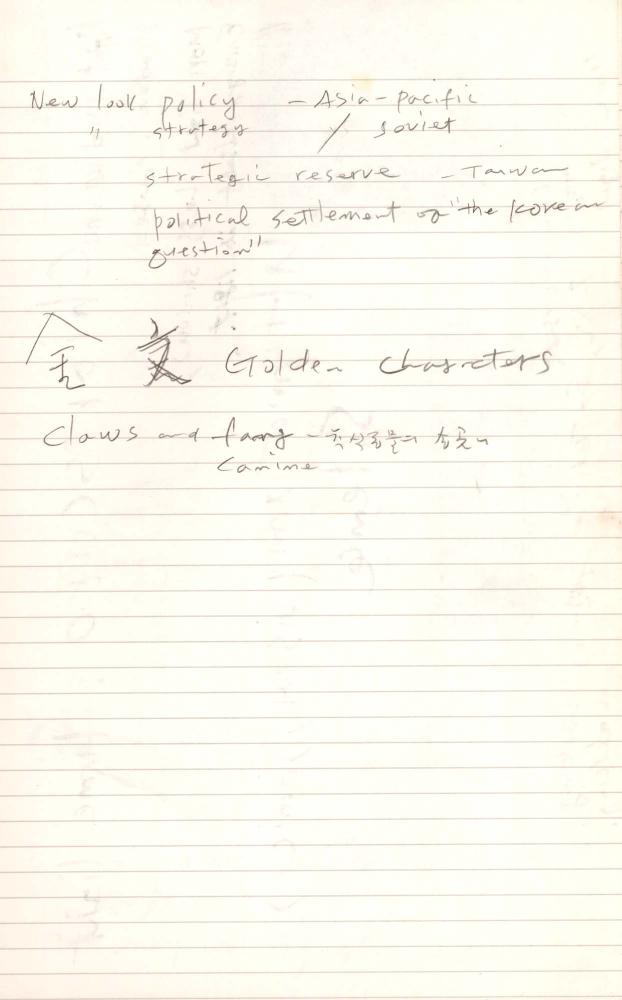 New look policy – Asia-pacific
" strategy / soviet
strategic reserve – Taiwan
political settlement of "the Korean
question"
Golden characters
Claws and fang – 육식동물의 송곳니
canine